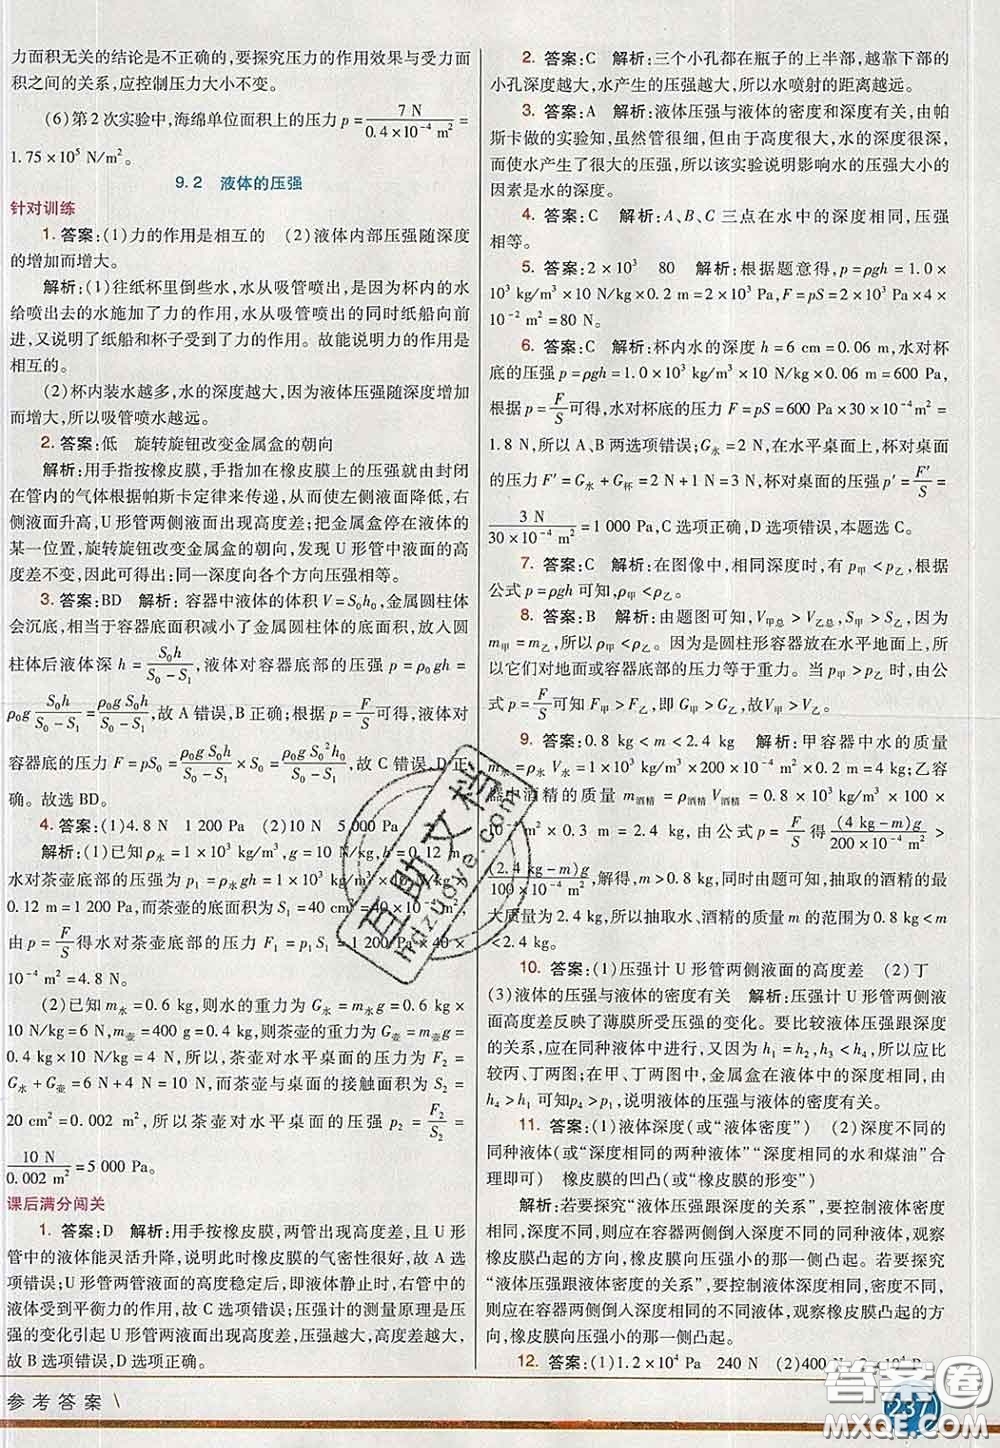 力面积无关的结论是不正确的,要探究压力的作用效果与受力面
积之间的关系,应控制压力大小不变。
(6)第2次实验中,海绵单位面积上的压力 p = 7 N / 0.4×10⁻⁴ m² =
1.75×10⁵ N/m²。
9.2 液体的压强
针对训练
1. 答案:(1)力的作用是相互的 (2)液体内部压强随深度
的增加而增大。
解析:(1)往纸杯里倒些水,水从吸管喷出,因为杯内的水
给喷出去的水施加了力的作用,水从吸管喷出的同时纸船向前
进,又说明了纸船和杯子受到了力的作用。故能说明力的作用是
相互的。
(2)杯内装水越多,水的深度越大,因为液体压强随深度增加
而增大,所以吸管喷水越远。
2. 答案:低 旋转旋钮改变金属盒的朝向
解析:用手指按橡皮膜,手指加在橡皮膜上的压强由封闭
在管内的气体根据帕斯卡定律来传递,从而使左侧液面降低,右
侧液面升高,U形管两侧液面出现高度差;把金属盒停在液体的
某一位置,旋转旋钮改变金属盒的朝向,发现U形管中液面的高
度差不变,因此可得出:同一深度向各个方向压强相等。
3. 答案:BD 解析:容器中液体的体积 V=S₀h₀,金属圆柱体
会沉底,相当于容器底面积减小了金属圆柱体的底面积,放入圆
柱体后液体深 h = S₀h / S₀−S₁,液体对容器底部的压强 p=ρ₀gh=
ρ₀g S₀h / S₀−S₁ = ρ₀g S₀h / S₀−S₁,故A错误,B正确;根据 p = F/S 可得,液体对
容器底的压力 F=pS₀ = ρ₀g S₀h / S₀−S₁ × S₀ = ρ₀g S₀²h₀ / S₀−S₁,故C错误,D正
确。故选BD。
4. 答案:(1)4.8 N 1 200 Pa (2)10 N 5 000 Pa
解析:(1)已知 ρ水=1×10³ kg/m³,g=10 N/kg,h=0.12 m,
水对茶壶底部的压强为 p₁=ρ水gh=1×10³ kg/m³×10 N/kg×
0.12 m=1 200 Pa,而茶壶的底面积为 S₁=40 cm²=40×10⁻⁴ m²,
由 p = F/S 得水对茶壶底部的压力 F₁=p₁S₁=1 200 Pa×40×
10⁻⁴ m²=4.8 N。
(2)已知 m水=0.6 kg,则水的重力为 G水=m水g=0.6 kg×10
N/kg=6 N,m壶=400 g=0.4 kg,则茶壶的重力为 G壶=m壶g=
0.4 kg×10 N/kg=4 N,所以,茶壶对水平桌面的压力为 F₂=
G水+G壶=6 N+4 N=10 N。茶壶与桌面的接触面积为 S₂=
20 cm²=0.002 m²,所以茶壶对水平桌面的压强 p₂ = F₂/S₂ =
10 N / 0.002 m² = 5 000 Pa。
课后满分闯关
1. 答案:D 解析:用手按橡皮膜,两管出现高度差,且U形
管中的液体能灵活升降,说明此时橡皮膜的气密性很好,故A选
项错误;U形管两管液面的高度稳定后,即液体静止时,右管中的
液体受到平衡力的作用,故C选项错误;压强计的测量原理是压
强的变化引起U形管两液面出现高度差,压强越大,高度差越大,
故B选项错误,D选项正确。
2. 答案:C 解析:三个小孔都在瓶子的上半部,越靠下部的
小孔深度越大,水产生的压强越大,所以水喷射的距离越远。
3. 答案:A 解析:液体压强与液体的密度和深度有关,由帕
斯卡做的实验知,虽然管很细,但由于高度很大,水的深度很深,
而使水产生了很大的压强,所以该实验说明影响水的压强大小的
因素是水的深度。
4. 答案:C 解析:A、B、C三点在水中的深度相同,压强
相等。
5. 答案:2×10³ 80 解析:根据题意得,p=ρgh=1.0×10³
kg/m³×10 N/kg×0.2 m=2×10³ Pa,F=pS=2×10³ Pa×4×
10⁻² m²=80 N。
6. 答案:C 解析:杯内水的深度 h=6 cm=0.06 m,水对杯
底的压强 p=ρgh=1.0×10³ kg/m³×10 N/kg×0.06 m=600 Pa,
根据 p = F/S 可得,水对杯底的压力 F=pS=600 Pa×30×10⁻⁴ m²=
1.8 N,所以A、B两选项错误;G水=2 N,在水平桌面上,杯对桌面
的压力 F′=G水+G杯=2 N+1 N=3 N,杯对桌面的压强 p′ = F′/S =
3 N / 30×10⁻⁴ m² = 1 000 Pa,C选项正确,D选项错误,本题选C。
7. 答案:C 解析:在图像中,相同深度时,有 p甲<p乙,根据
公式 p=ρgh 可知,ρ甲<ρ乙。
8. 答案:B 解析:由题图可知,V甲总>V乙总,S甲>S乙,因为
m甲=m乙,所以 ρ甲<ρ乙。因为是圆柱形容器放在水平地面上,所
以它们对地面或容器底部的压力等于重力。当 p甲>p乙 时,由公
式 p = F/S 可知 F甲>F乙,即 G甲>G乙,故 V甲>V乙。
9. 答案:0.8 kg<m<2.4 kg 解析:甲容器中水的质量
m水=ρ水V水=1×10³ kg/m³×200×10⁻⁴ m²×0.2 m=4 kg;乙容
器中酒精的质量 m酒精=ρ酒精V酒精=0.8×10³ kg/m³×100×
10⁻⁴ m²×0.3 m=2.4 kg,由公式 p = F/S 得 (4 kg−m)g / 200×10⁻⁴ m² >
(2.4 kg−m)g / 100×10⁻⁴ m²,解得,m>0.8 kg;同时由题可知,抽取的酒精的最
大质量为2.4 kg,所以抽取水、酒精的质量 m 的范围为0.8 kg<m
<2.4 kg。
10. 答案:(1)压强计U形管两侧液面的高度差 (2)丁
(3)液体的压强与液体的密度有关 解析:压强计U形管两侧液
面高度差反映了薄膜所受压强的变化。要比较液体压强跟深度
的关系,应在同种液体中进行,又因为 h₁=h₂,h₃<h₄,所以应比
较丙、丁两图;在甲、丁两图中,金属盒在液体中的深度相同,由
h₄>h₁可知p₄>p₁,说明液体的压强与液体的密度有关。
11. 答案:(1)液体深度(或“液体密度”) (2)深度不同的
同种液体(或“深度相同的两种液体”“深度相同的水和煤油”合
理即可) 橡皮膜的凹凸(或“橡皮膜的形变”)
解析:若要探究“液体压强跟深度的关系”,要控制液体密度
相同,深度不同,则应在容器两侧倒入深度不同的同种液体,观察
橡皮膜凸起的方向,橡皮膜向压强小的那一侧凸起。若要探究
“液体压强跟液体密度的关系”,要控制液体深度相同,密度不同,
则应在容器两侧倒入深度相同的不同种液体,观察橡皮膜凸起的方
向,橡皮膜向压强小的那一侧凸起。
12. 答案:(1)1.2×10⁴ Pa 240 N (2)400 N
参考答案
237
互助文档
hdzuoye.com
答案圈
MXQE.COM